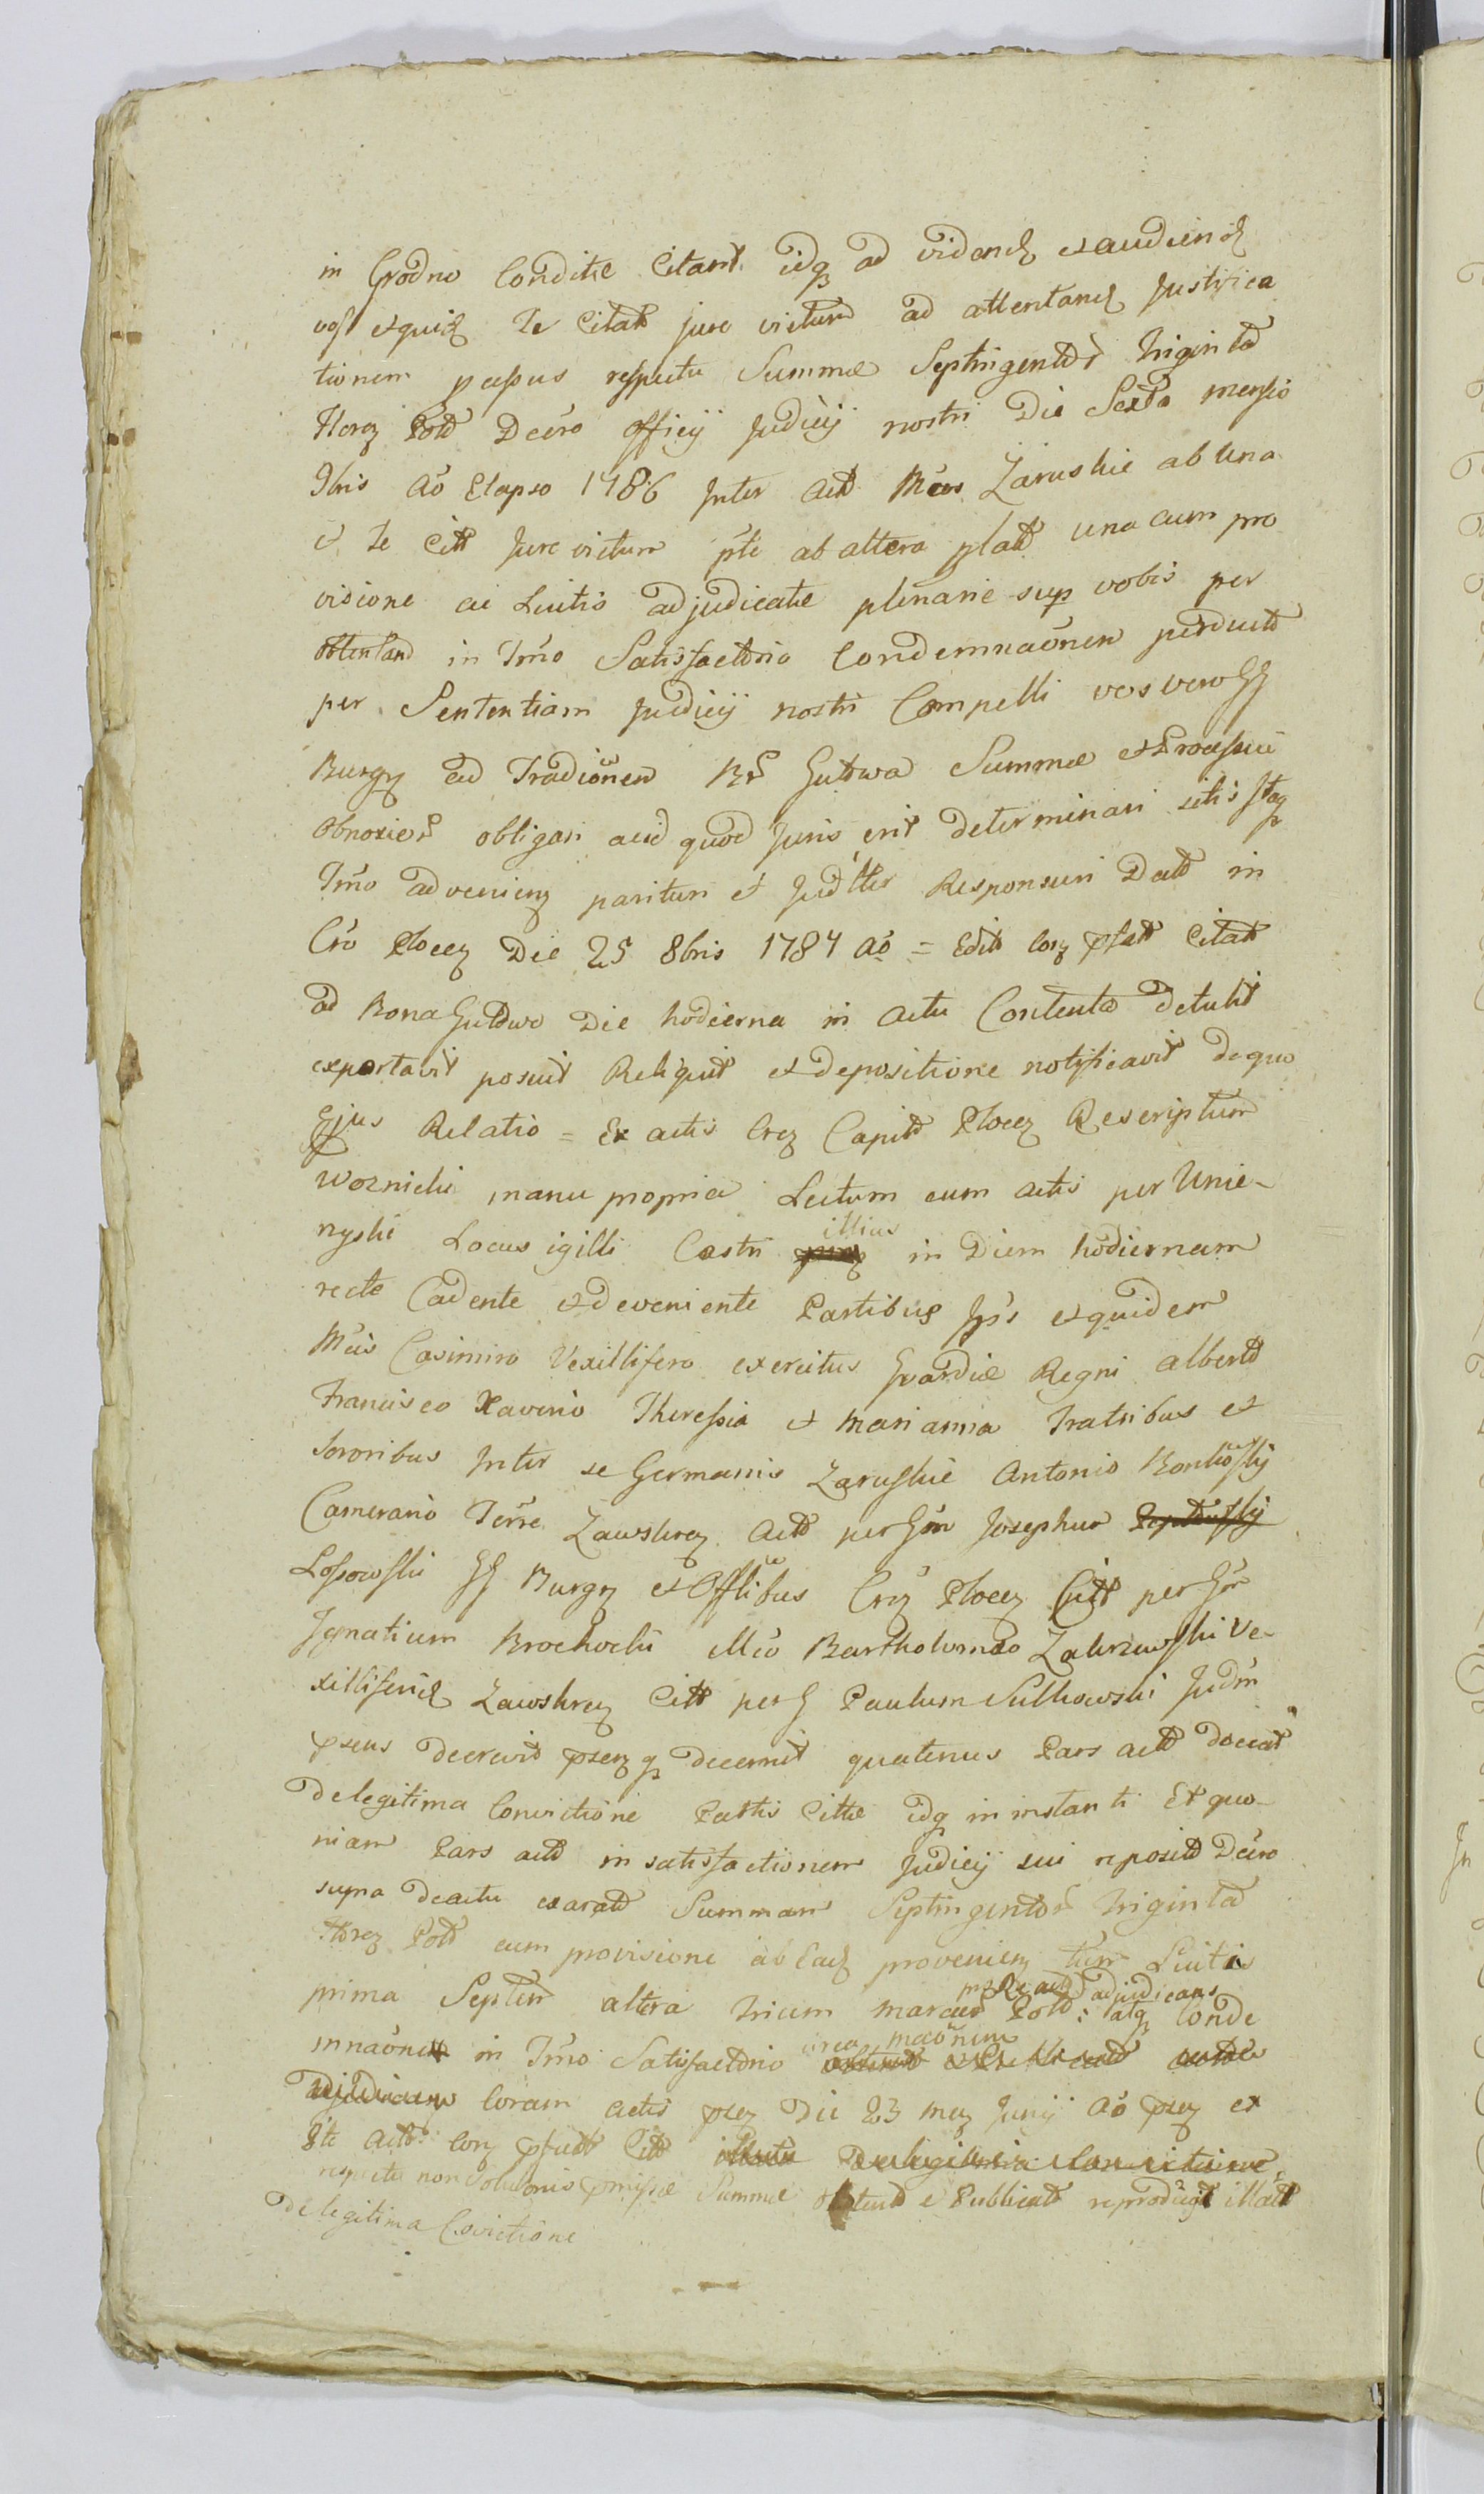 in Grodno Conditæ Citant idq ad videnđ et audienđ
vos et quiđ Te Citatt jure victum ad attentanđ Justifica
tionem passus respectu Summæ Septingentor Triginta
floreɀ Poll Decro Officij Judicij nostri Die Sexta mensis
9bris Aō Elapso 1786 Inter Act Mcos Zaruskie ab una
et Te Citt Jure victum pte ab altera platt una cum pro
visione ac Luitis adjudicatæ plenarie sup vobis per
obtentand in Trno Satisfactorio Condemnaōnem perducta
per Sententiam Judicij nostri Compelli vos vero GG
Burgɀ ad Tradiōnem Br Gutowa Summæ et Processui
Obnoxior obligari acid quod Juris erit determinari sitis Itaq
Trno advenienɀ parituri et Judlter Responsuri Datt in
Cro Plocenɀ Die 25 8bris 1787 Aō = Editt Corɀ pfatt Citatt
ad Bona Gutowo Die hodierna in actu Contenta detulit
exportavit posuit Reliquit et depositione notificavit de quo
Ejus Relatio = Ex actis Crɀ Capitt Plocenɀ Rescriptum
Woznicki manu propria Lectum cum actis per Unie-
nyski Locus igilli Castri illius in Diem hodiernam
recte Cadente et deveniente Partibus Ips et quidem
Mcis Casimiro Vexillifero exercitus Gvardiæ Regni Alberto
Francisco Xaverio Theressia et Marianna Fratribus et
Sororibus Inter se Germanis Zaruskie Antonio Bonkoski
Camerario Terre Zawskrɀ Act per Gm Josephum
Lossowski GG Burgɀ et Offlibus Crɀ Plocenɀ Citt per Gm
Ignatium Brochocki Mco Bartholomæo Zakrzewski Ve-
xilliferiđ Zawskrenɀ Citt per G Paulum Sulkowski Judm
pseus decrevit pserɀq decernit quatenus Pars actt doceat
de legitima Convictione Partis Cittæ idq in instanti Et quo-
niam Pars actt in satisfactionem Judicij sui reposito Decro
supra de actu exaratt Summam Septingentor Triginta
floreɀ Poll cum provisione ab Eađ provenienɀ tum Luitis
prima Septem altera trium marcar Poll: pro Re act adjudicans atq Conde
mnaōnem in Trno Satisfactorio
Coram actis pserɀ Die 23 menɀ Junij Aō pserɀ ex
Pte Act Corɀ pfatt Citt
respectu non Solutionis pmissæ Summæ obtent e Publicatt reproducit illatt
de legitima Convictione